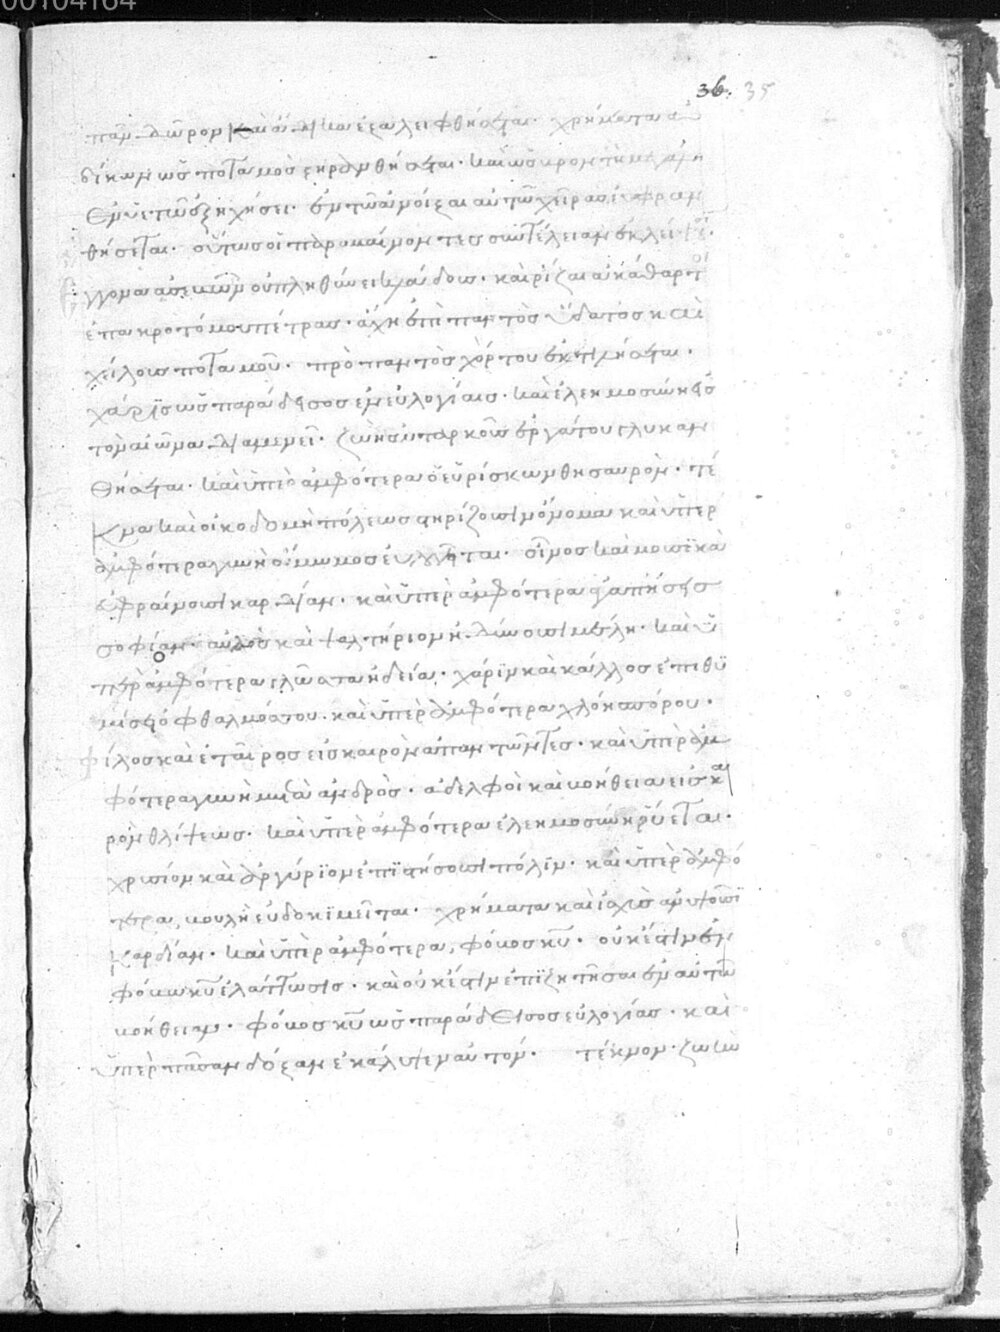 00104164
36. 35
πᾶν δῶρον καὶ ἀδικία ἐξαλειφθήσεται· χρήματα ἀ
δίκων ὡς ποταμὸς ξηρανθήσεται· καὶ ὡς βροντὴ μεγάλη
ἐν ὑετῷ ἐξηχήσει· ἐν τῷ ἀνοῖξαι αὐτὸν χεῖρας εὐφραν
θήσεται· οὕτως οἱ παραβαίνοντες συντέλειαν ἐκλεί
γγονα ἀσεβῶν οὐ πληθύνει κλάδους· καὶ ῥίζαι ἀκάθαρτοι
ἐπ' ἀκροτόμου πέτρας· ἄχι ἐπὶ παντὸς ὕδατος καὶ
χείλους ποταμοῦ· πρὸ παντὸς χόρτου ἐκτιλήσεται·
χάρις ὡς παράδεισος ἐν εὐλογίαις· καὶ ἐλεημοσύνη εἰς
τὸν αἰῶνα διαμενεῖ· ζωὴ αὐταρκοῦς ἐργάτου γλυκαν
θήσεται· καὶ ὑπὲρ ἀμφότερα ὁ εὑρίσκων θησαυρόν· τέ
κνα καὶ οἰκοδομὴ πόλεως στηρίζουσιν ὄνομα καὶ ὑπὲρ
ἀμφότερα γυνὴ ἄμωμος λογίζεται· οἶνος καὶ μουσικὰ
εὐφραίνουσι καρδίαν· καὶ ὑπὲρ ἀμφότερα ἀγάπησις
σοφίας· αὐλὸς καὶ ψαλτήριον ἡδύνουσι μέλη· καὶ ὑ
πὲρ ἀμφότερα γλῶσσα ἡδεῖα· χάριν καὶ κάλλος ἐπιθυ
μήσει ὀφθαλμός σου· καὶ ὑπὲρ ἀμφότερα χλόη σπόρου·
φίλος καὶ ἑταῖρος εἰς καιρὸν ἀπαντῶντες· καὶ ὑπὲρ ἀμ
φότερα γυνὴ μετὰ ἀνδρός· ἀδελφοὶ καὶ βοήθεια εἰς και
ρὸν θλίψεως· καὶ ὑπὲρ ἀμφότερα ἐλεημοσύνη ῥύεται·
χρυσίον καὶ ἀργύριον ἐπιστήσουσι πόδιν· καὶ ὑπὲρ ἀμφό
τερα βουλὴ εὐδοκιμεῖται· χρήματα καὶ ἰσχὺς ἀνυψοῦσι
καρδίαν· καὶ ὑπὲρ ἀμφότερα φόβος κυ· οὐκ ἔστιν ἐν
φόβῳ κυ ἐλάττωσις· καὶ οὐκ ἔστιν ἐπιζητῆσαι ἐν αὐτῷ
βοήθειαν· φόβος κυ ὡς παράδεισος εὐλογίας· καὶ
ὑπὲρ πᾶσαν δόξαν ἐκάλυψεν αὐτόν· τέκνον ζωὴν